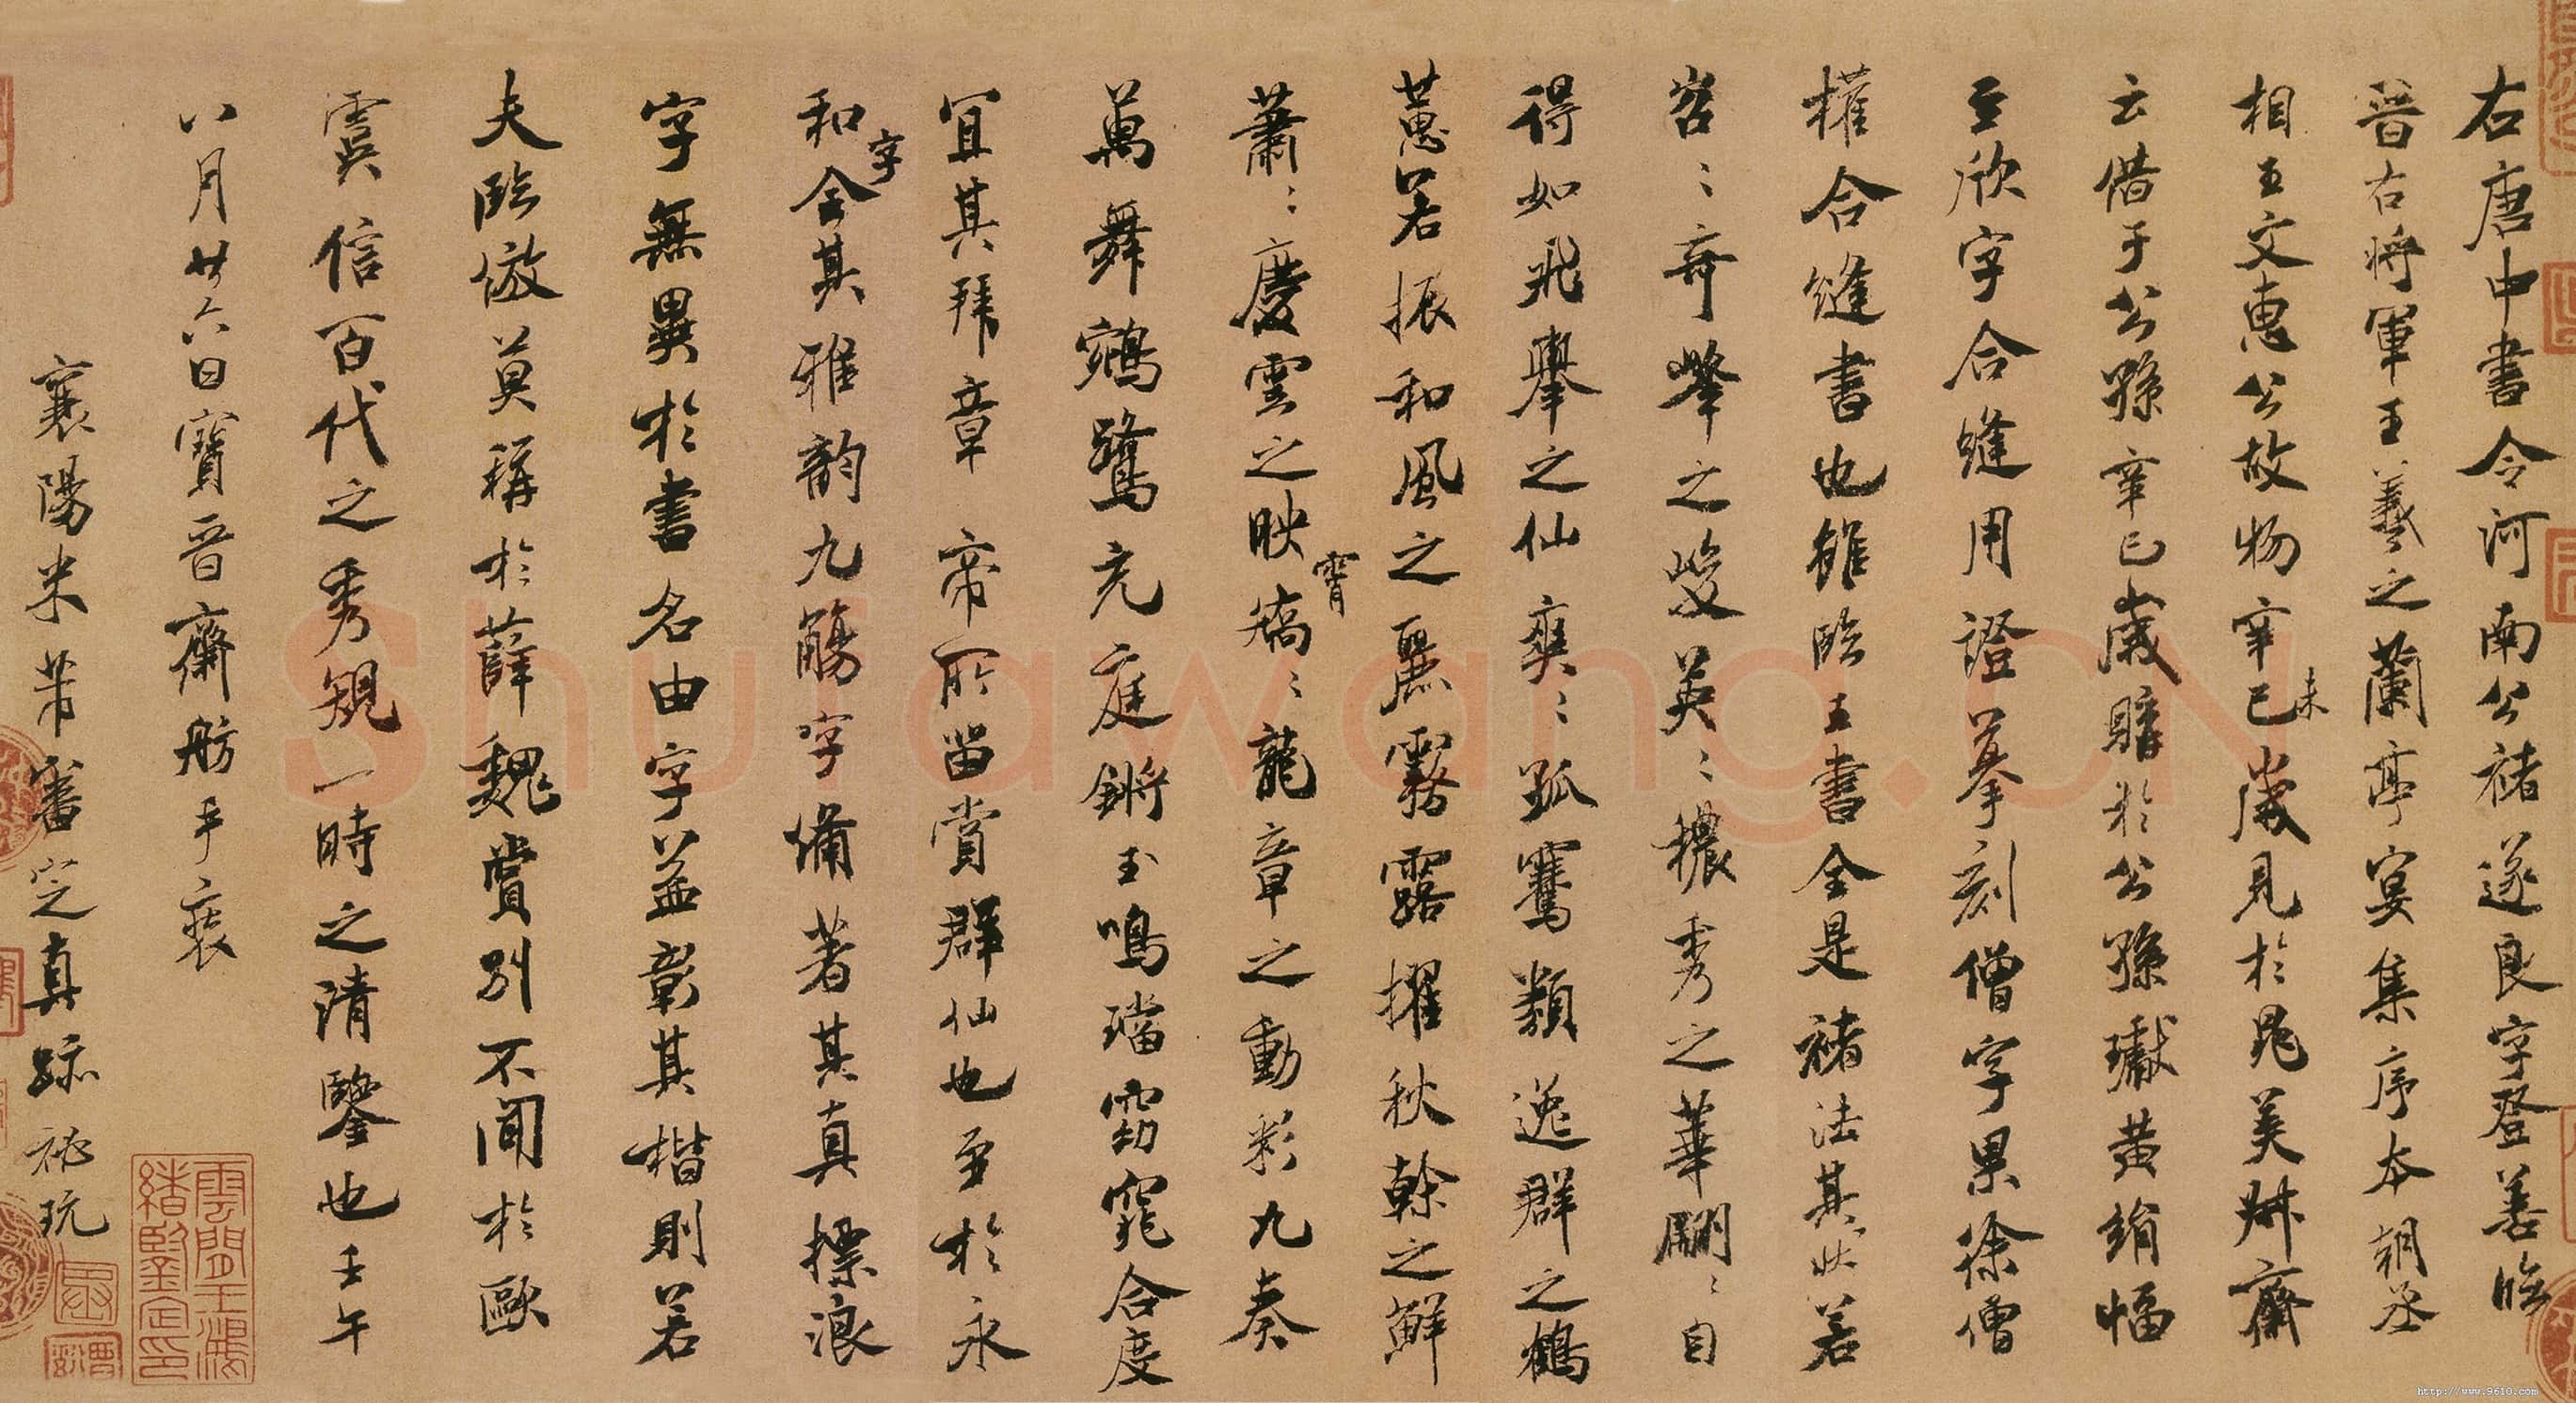 右唐中書令河南公褚遂良字登善臨
晉右將軍王羲之蘭亭宴集序本朝丞
相王文惠公故物辛巳歲見於晁美叔齋
未
云借于公孫辛巳歲購於公孫瓛黃絹幅
至欣字合縫用證摹刻僧字果徐僧
權合縫書也雖臨王書全是褚法其狀若
岩〻奇峯之峻英〻穠秀之華翩〻自
得如飛舉之仙爽〻孤騫類逸群之鶴
蕙若振和風之麗霧露擢秋幹之鮮
蕭〻慶雲之映矯〻龍章之動彩九奏
霄
萬舞鵷鷺充庭鏘玉鳴璫窈窕合度
宜其拜章 帝所留賞群仙也至於永
和全其雅韵九觴字備著其真標浪
字
字無異於書名由字益彰其楷則若
夫臨倣莫稱於薛魏賞別不聞於歐
虞信百代之秀規一時之清鑒也壬午
八月廿六日寶晉齋舫手裝
襄陽米芾審定真跡秘玩
雲間王鴻
緒鑒定印
Shufawang.CN
http://www.9610.com